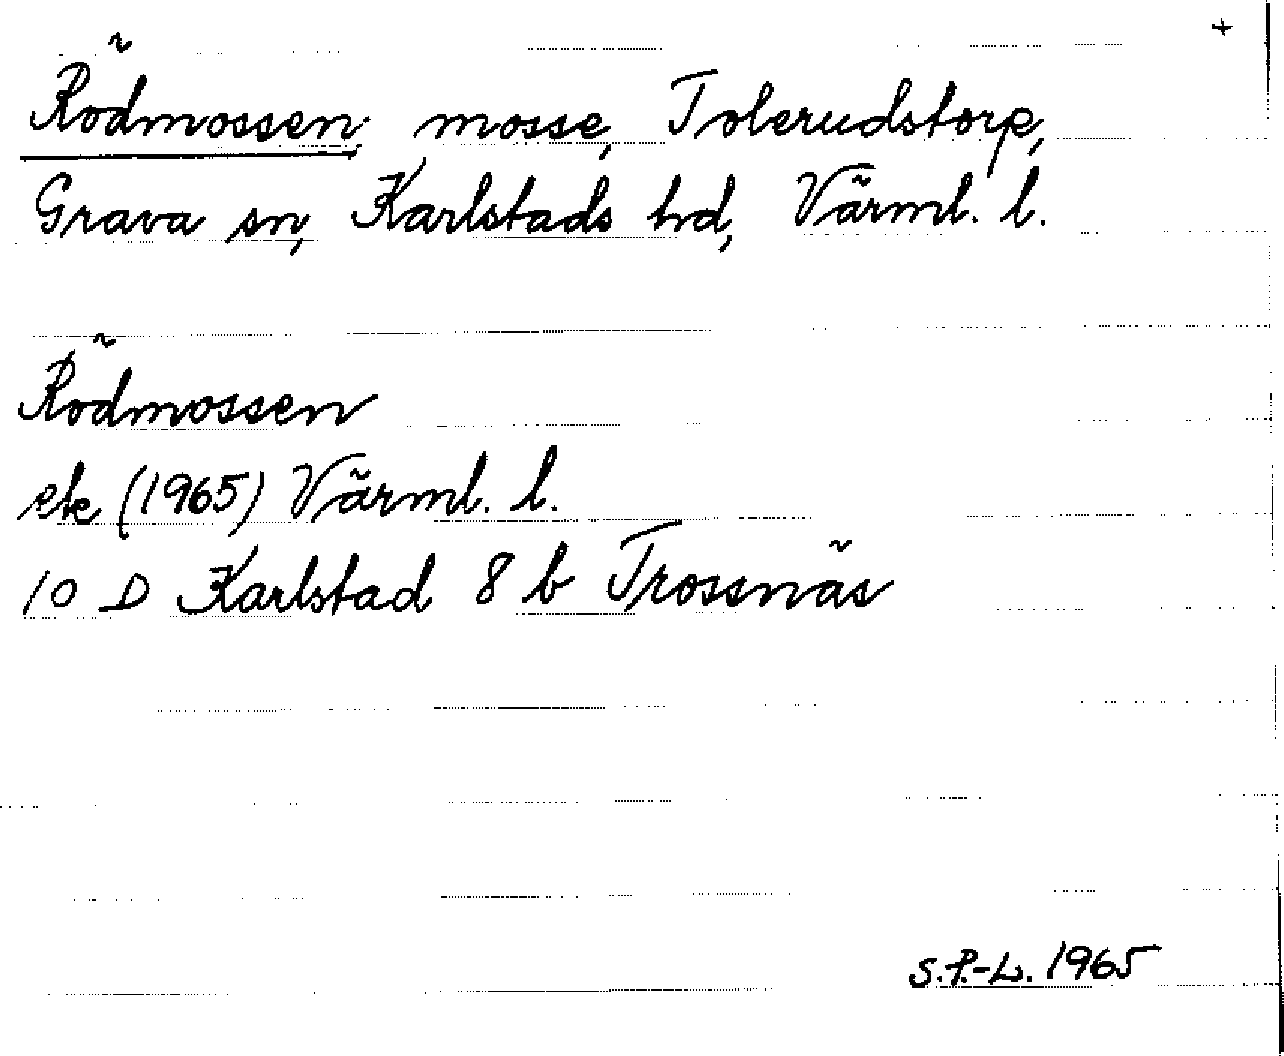 +
Rödmossen mosse, Tolerudstorp,
Grava sn, Karlstads hd, Värml. l.
Rödmossen
ek (1965) Värml. l.
10 D Karlstad 8 b Trossnäs
S.P.-L. 1965